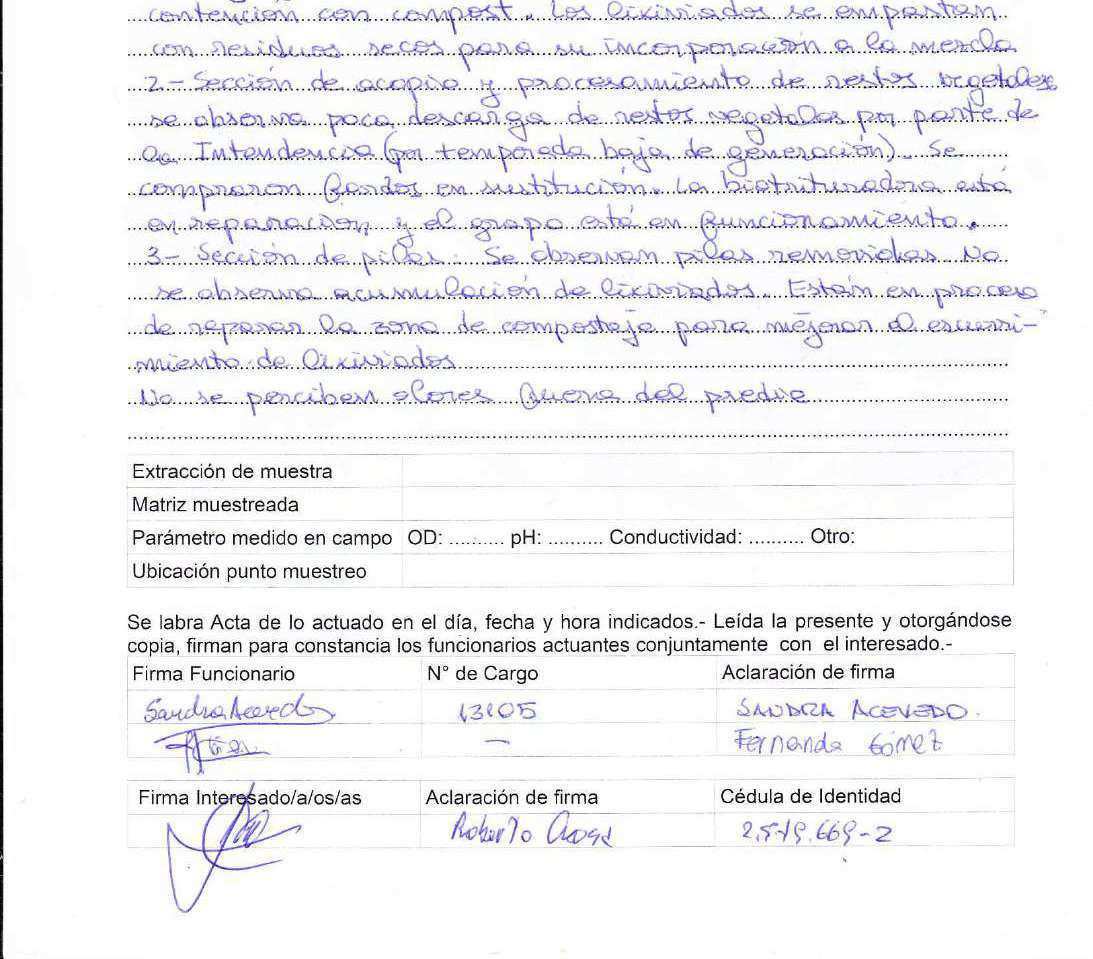 contención con compost. Los lixiviados se empastan
con residuos secos para su incorporación a la mezcla
2- Sección de acopio y procesamiento de restos vegetales
se observa poca descarga de restos vegetales por parte de
la Intendencia (por temporada baja de generación). Se
compraron fardos en sustitución. La biotrituradora está
en reparación, y el grapo está en funcionamiento.
3- Sección de pilas. Se observan pilas removidas. No
se observa acumulación de lixiviados. Están en proceso
de reparar la zona de compostaje para mejorar el escurri-
miento de lixiviados
No se perciben olores fuera del predio
Extracción de muestra
Matriz muestreada
Parámetro medido en campo OD: .......... pH: .......... Conductividad: .......... Otro:
Ubicación punto muestreo
Se labra Acta de lo actuado en el día, fecha y hora indicados.- Leída la presente y otorgándose
copia, firman para constancia los funcionarios actuantes conjuntamente con el interesado.-
Firma Funcionario N° de Cargo Aclaración de firma
Sandra Acevedo 13105 SANDRA ACEVEDO.
— Fernanda Gómez
Firma Interesado/a/os/as Aclaración de firma Cédula de Identidad
Roberto 2.519.669-2